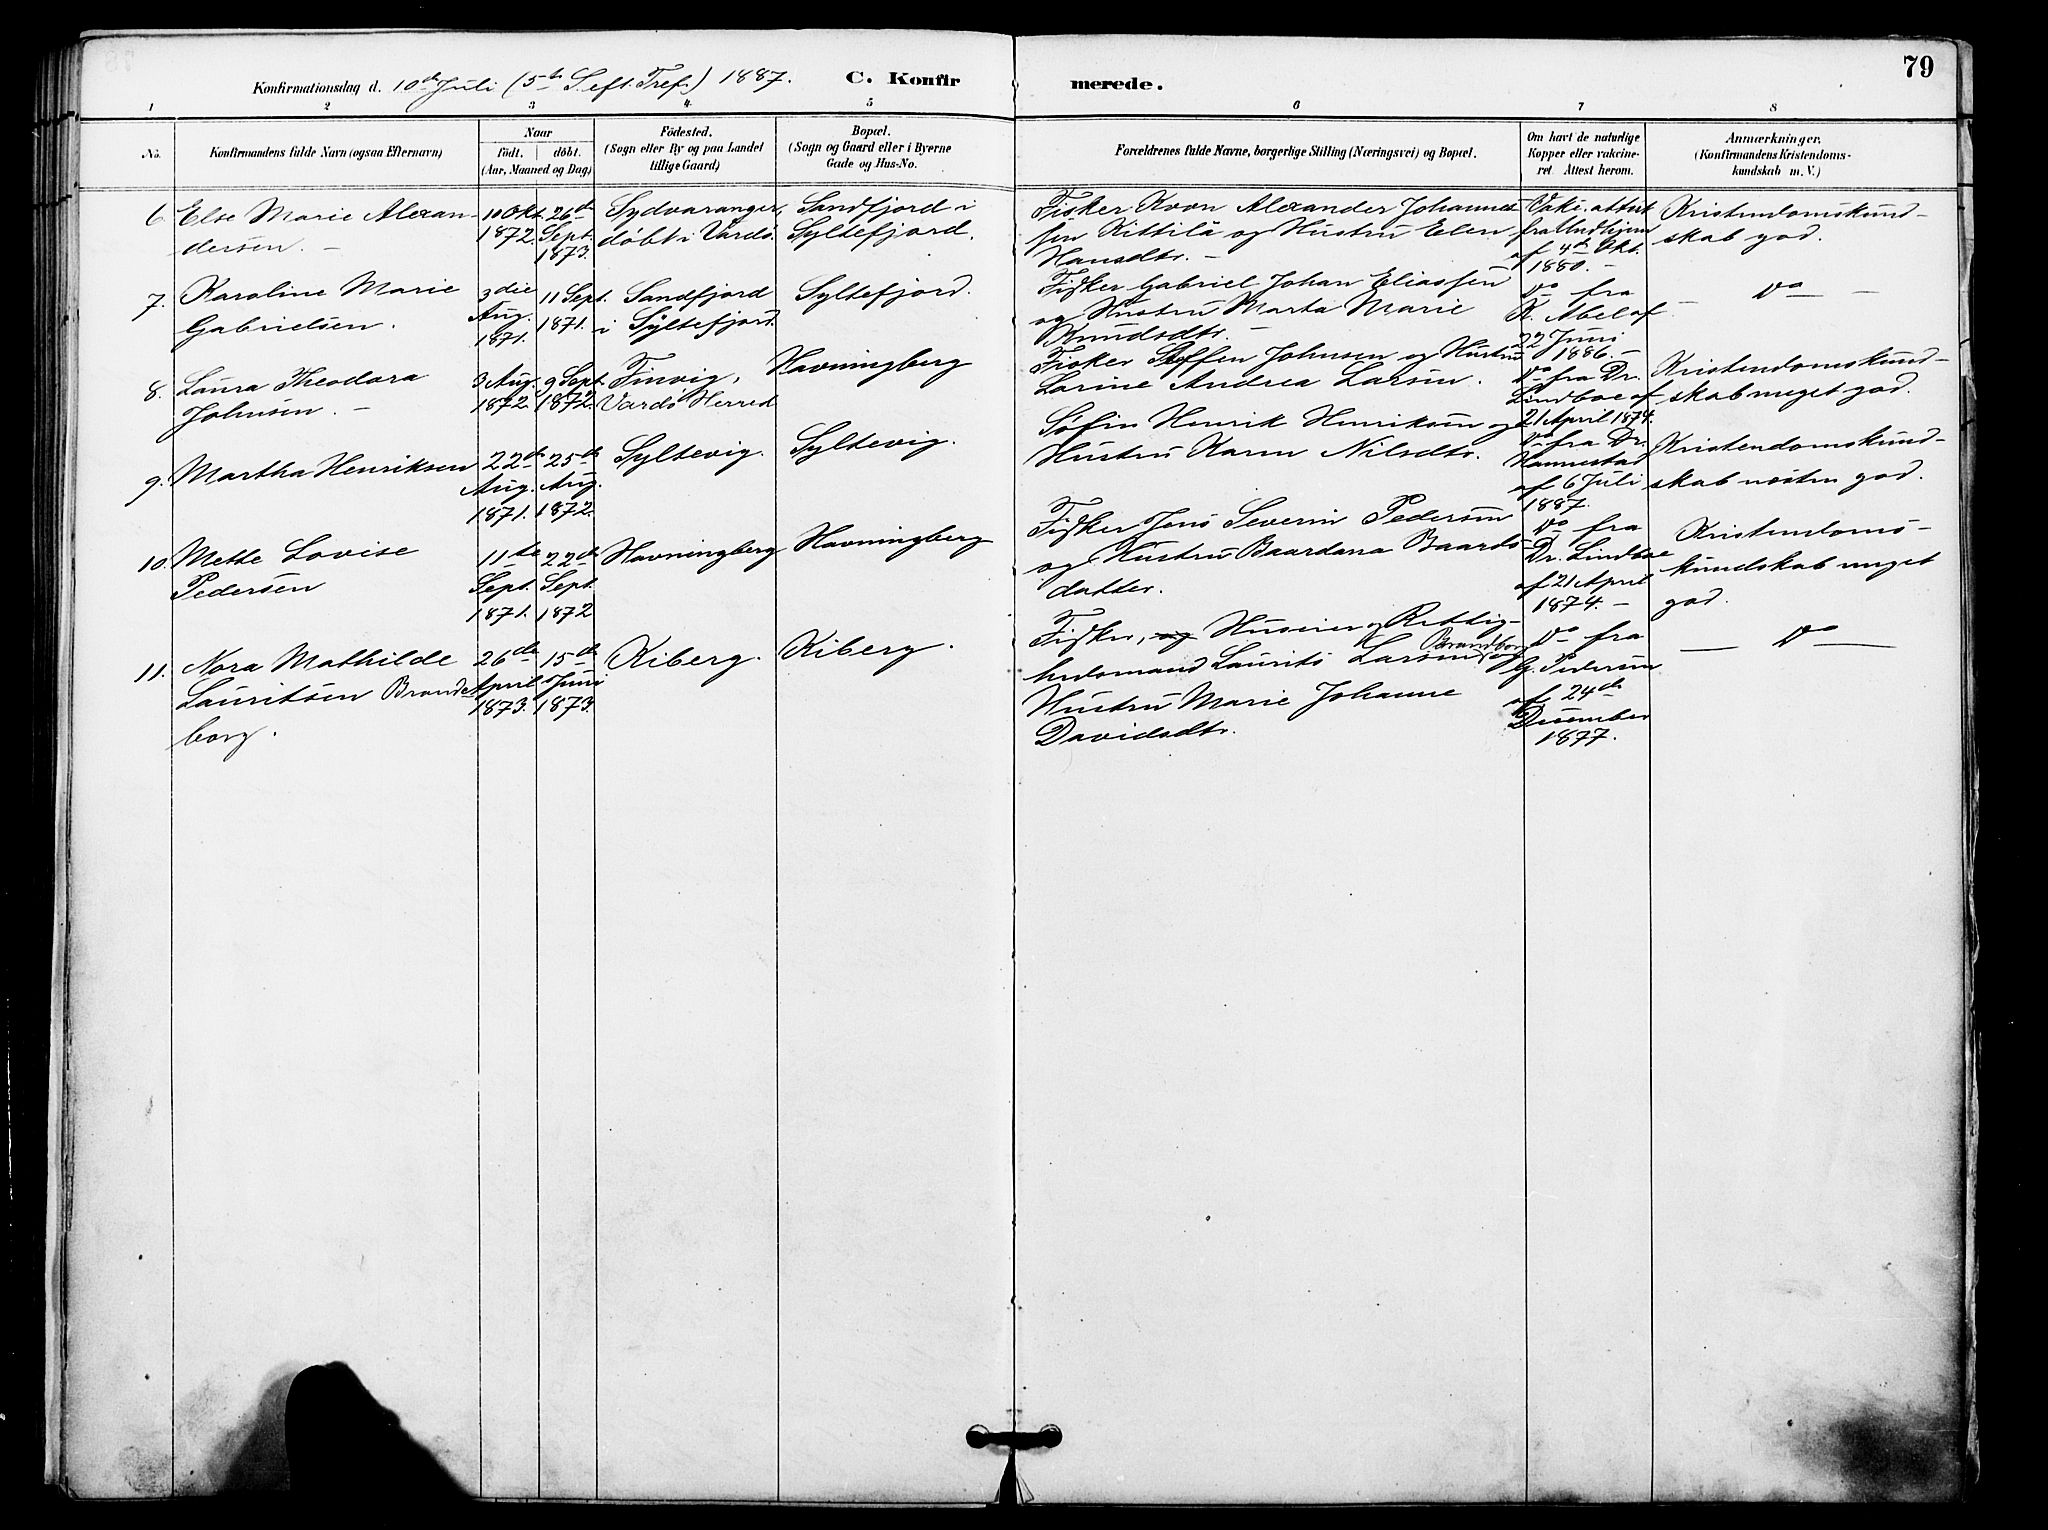 79
Konfirmationsdag d. 10de Juli (5te S. eft. Tref.) 1887. C. Konfirmerede.
1 2 3 4 5 6 7 8
No.
Konfirmandens fulde Navn (ogsaa Efternavn)
Naar
födt. döbt.
(Aar, Maaned og Dag)
Födested.
(Sogn eller By og paa Landet
tillige Gaard)
Bopæl.
(Sogn og Gaard eller i Byerne
Gade og Hus-No.
Forældrenes fulde Navne, borgerlige Stilling (Næringsvei) og Bopæl.
Om havt de naturlige
Kopper eller vakcine-
ret. Attest herom.
Anmærkninger.
(Konfirmandens Kristendoms-
kundskab m. V.)
6. Else Marie Alexan-
dersen. –
10 Okt.
1872.
26de
Sept.
1873.
Sydvaranger,
döbt i Vardö.
Sandfjord i
Syltefjord.
Fisker Kvæn Alexander Johannes-
sen Kittilä og Hustru Elen
Hansdtr. –
Vakc. attest
fra
af 4de Okt.
1880. –
Kristendomskund-
skab god.
7. Karoline Marie
Gabrielsen.
3die
Aug.
1871.
11 Sept.
1871.
Sandfjord
i Syltefjord.
Syltefjord.
Fisker Gabriel Johan Eliassen
og Hustru Marta Marie
Knudsdtr. –
Do fra
K. Abel af
22 Juni
1886. –
– Do –
8. Laura Theodora
Johnsen. –
3 Aug.
1872.
9 Sept.
1872.
Finvig,
Vardö Herred
Havningberg
Fisker Steffen Johnsen og Hustru
Larine Andrea Larsen.
Do fra Dr.
Lindboe af
21 April 1874.
Kristendomskund-
skab meget god.
9. Martha Henriksen
22de
Aug.
1871.
25de
Aug.
1872.
Syltevig.
Syltevig.
Söfin Henrik Henriksen og
Hustru Karen Nilsdtr.
Do fra Dr.
Hannestad
af 6 Juli
1887.
Kristendomskund-
skab næsten god.
10. Mette Lovise
Pedersen
11te
Sept.
1871.
22de
Sept.
1872
Havningberg
Havningberg
Fisker Jens Severin Pedersen
og Hustru Baardana Baards-
datter.
Do fra
Dr. Lindboe
af 21 April
1874. –
Kristendoms-
kundskab meget
god.
11. Nora Mathilde
Lauritsen Brande
borg.
26de
April
1873.
15de
Juni
1873.
Kiberg.
Kiberg.
Fisker, og Huseier og Rettig-
hedsmand Laurits Larsen Brandborg og
Hustru Marie Johanne
Davidsdtr.
Do fra
G. Pedersen
af 24de
Desember
1877.
– Do –